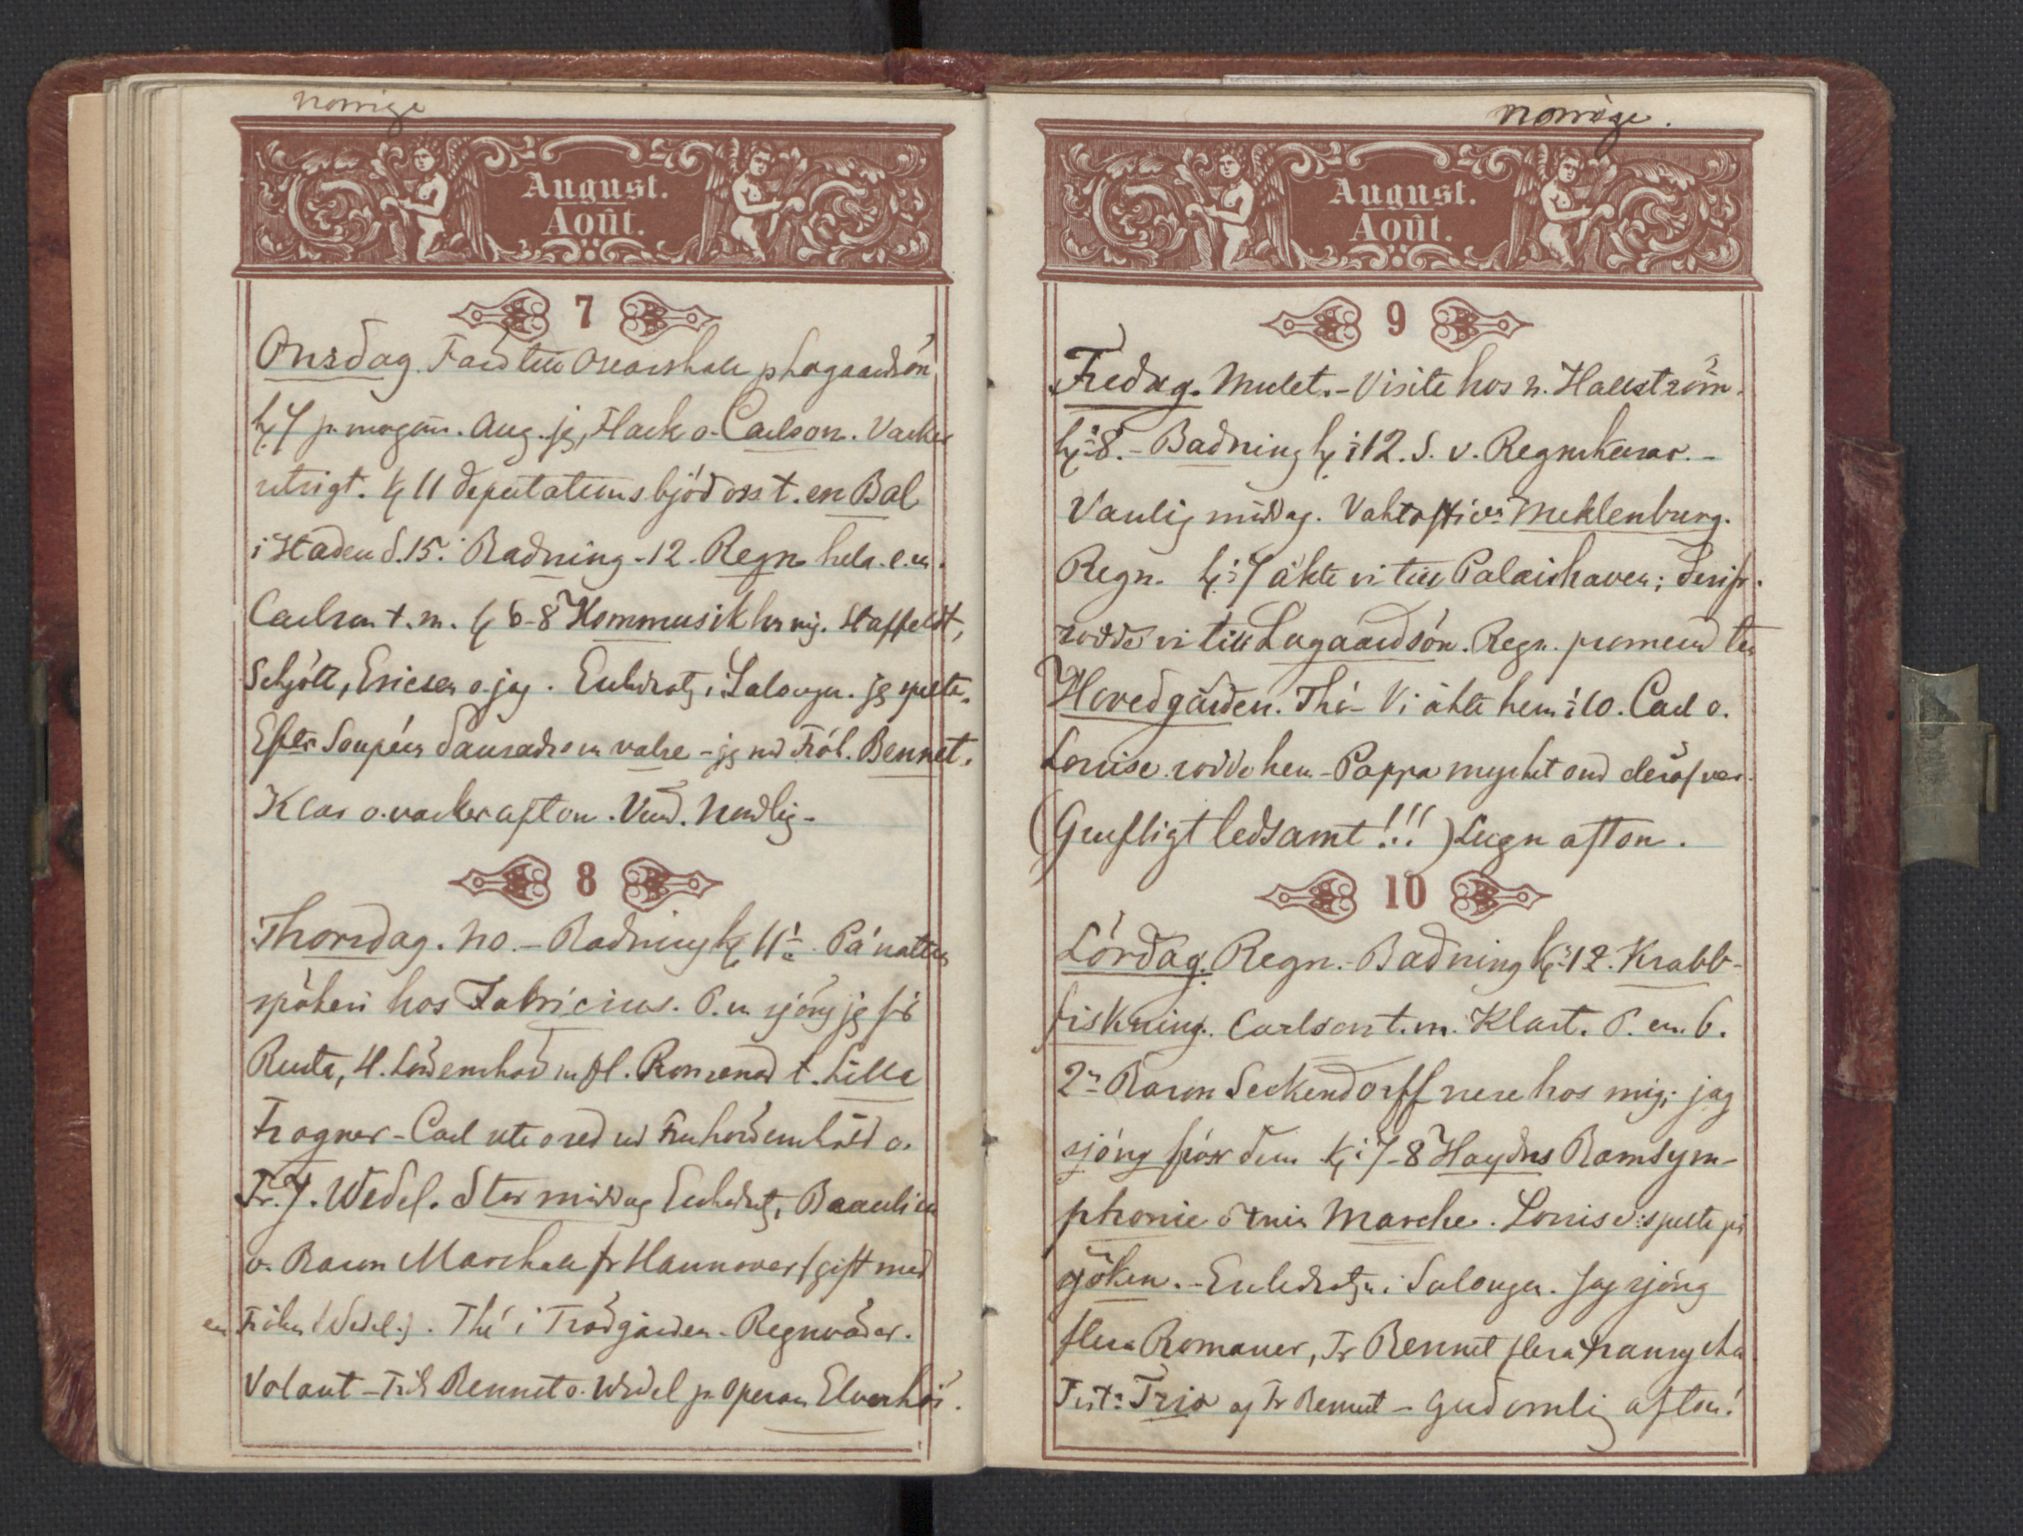 Norrige
August.
Août.
7
Onsdag. Färd till Oscarshall p Lagaardsön
kl 7 p. morgon. Aug. jg, Flack o. Carlson. Vacker
utsigt. kl 11 deputations bjöd oss t. en Bal
i Staden d. 15. Badning - 12. Regn hela e.m.
Carlson t. m. kl 6-8 Hornmusik hos mig. Staffeldt,
Schjött, Ericsen o. jag. Enledrotg i Salongen. jg spelte.
Efter Soupéen dansades en valse - jg med Fröl. Bennet.
Klar o. vacker afton. Vind. Nordlig -
8
Thorsdag. NO. - Badning kl 11½ På natten
spökeri hos Fabricius. E. m sjöng jg för
Reuta, H. Lövenskiold m fl. Promenad t. Lilla
Frogner - Carl ute o red md Fru Lövenskiold o.
Fr. J. Wedel. Stor middag Enledrotg,
v. Baron Marchall fr Hannover (gift med
en Fröken Wedel.). Thé i Trädgården - Regnväder.
Volant - Frök Bennet o. Wedel p. operan Elverhöi.
Norrige.
August.
Août.
9
Fredag. Mulet. - Visite hos h. Hallström.
kl ½8. - Badning kl ½12. S. v. Regnskurar. -
Vanlig middag. Vaktoffic:r Meklenburg.
Regn. kl ½7 åkte vi till Palaishaven; derifr.
rodde vi till Lagaardsön. Regn. promenad till
Hovedgården. Thé - Vi åkte hem ½10. Carl o.
Louise rodde hem - Pappa mycket ond deröfver.
(Grufligt ledsamt!!!) Lugn afton.
10
Lördag. Regn. - Badning kl ½12. Krabb-
fiskning. Carlson t. m. Klart. E. m. 6.
2n Baron Seckendorff nere hos mig; jag
sjöng för dem kl ½7-8 Haydns Barnsym-
phonie o Marche. Louise spelte på
göken. - Enledrotg i Salongen. Jag sjöng
flera Romanser, Fr Bennet flera franycka
Sist: Trio af Fr Bennet - gudomlig afton!